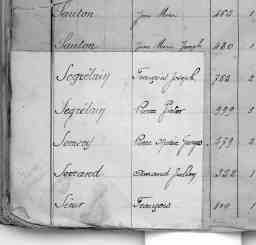 Santon Jean Marie 463 1
Santon Jean Marie Joseph 480 1
Segrétain François Joseph 782 2
Ségrétain Pierre Victor 999 1
Semery Pierre Marie Georges 479 2
Servard Armand Julien 322 1
Sieur François 100 1